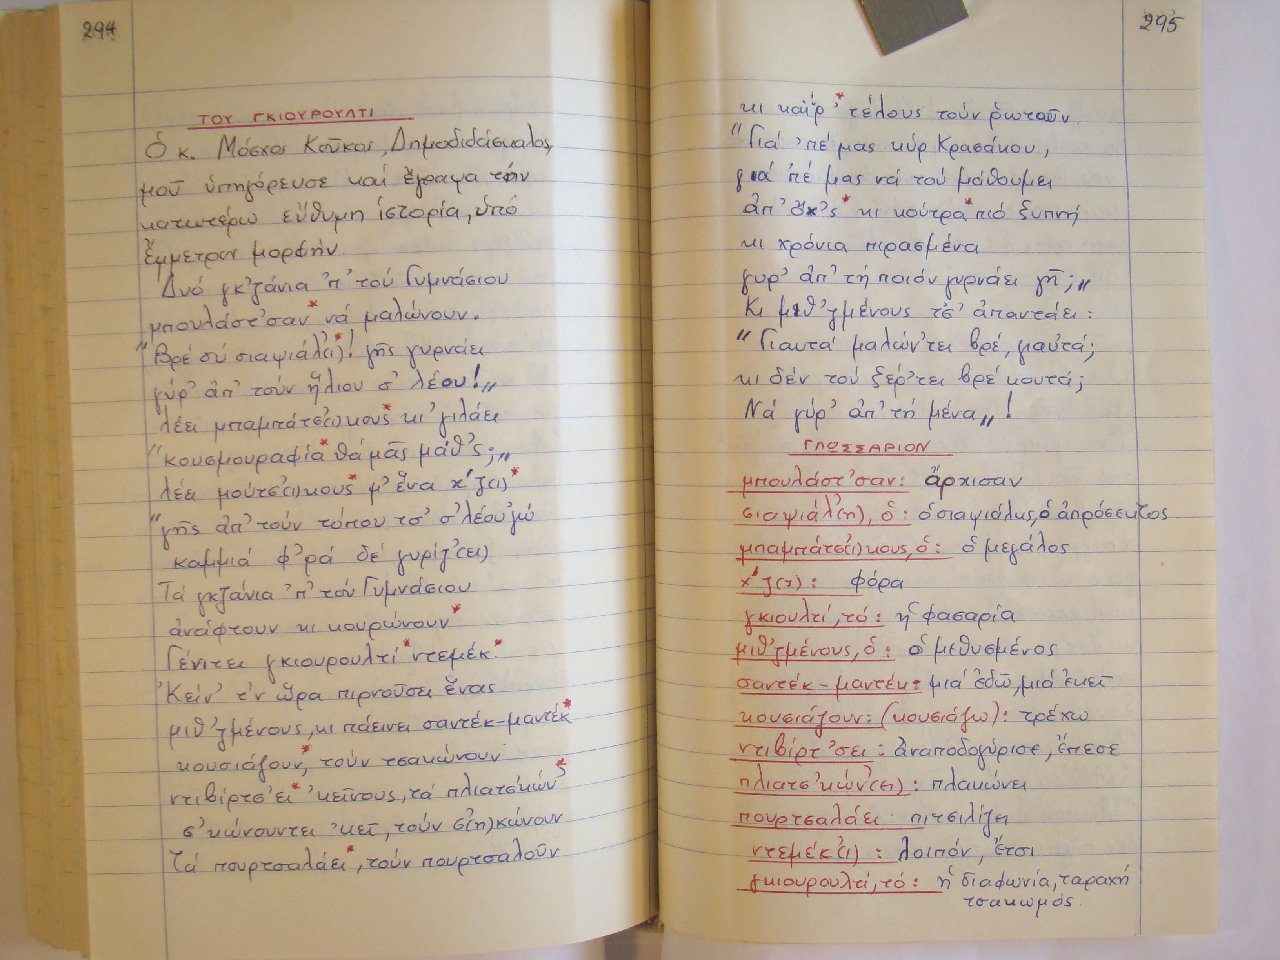 294
ΤΟΥ ΓΚΙΟΥΡΟΥΛΤΙ
Ὁ κ. Μόσχος Κούκος, Δημοδιδάσκαλος,
μοῦ ὑπηγόρευσε καί ἔγραψα τήν
κατωτέρω εὔθυμη ἱστορία, ὑπό
ἔμμετρον μορφήν.
Δυό γκ'ζάνια 'π' τού Γυμνάσιου
μπουλάστ'σαν* νά μαλώνουν.
"Βρέ σύ σιαψιάλ'(ι)*! γῆς γυρνάει
γύρ' ἀπ' τούν ἥλιου σ' λέου!„
λέει μπαμπάτσ(ι)κους* κι' γιλάει
"κουσμουραφία* θά μᾶς μάθ'ς;„
λέει μούτσ(ι)κους* μ' ἕνα χ'ζ(ι)*
"γῆς ἀπ' τούν τόπου τσ' σ' λέου 'γώ
καμμιά φ'ρά δέ γυρίζ'(ει)
Τά γκ'ζάνια 'π' τόν Γυμνάσιου
ἀνάφτουν κι κουρώνουν*
Γένιτει γκιουρουλτί* ντεμέκ*
'Κείν' τ'ν ὥρα πιρνοῦσει ἕνας
μιθ'ζμένους, κι πάεινει σαντέκ-μαντέκ*
κουσιάζουν*, τούν τσακώνουν
ντιβίρτσ'ει* 'κεῖνους, τά πλιατσ'κών'*
σ'κώνουντει 'κεῖ, τούν σ'(η)κώνουν
Τά πουρτσαλάει*, τούν πουρτσαλοῦν
295
κι καΐρ'* τέλους τούν ρωτοῦν.
"Γιά 'πέ μας κύρ Κρασάκου,
γιά 'πέ μας νά τού μάθουμει
ἀπ' οὕλ'ς* κι κούτρα* πιό ξυπνή
κι χρόνια πιρασμένα
γύρ' ἀπ' τή ποιόν γυρνάει γῆ;„
Κι μιθ'ζμένους τσ' ἀπαντάει:
"Γιαυτά μαλών'τει βρέ, γιαὐτά;
κι δέν τού ξέρ'τει βρέ κουτά;
Νά γύρ' ἀπ' τή μένα„!
ΓΛΩΣΣΑΡΙΟΝ
μπουλάστ'σαν: ἄρχισαν
σιαψιάλ'(η), ὁ: ὁ σιαψιάλης, ὁ ἀπρόσεκτος
μπαμπάτσ(ι)κους, ὁ: ὁ μεγάλος
χ'ζ(ι): φόρα
γκιουλτί, τό: ἡ φασαρία
μιθ'ζμένους, ὁ: ὁ μεθυσμένος
σαντέκ-μαντέκ: μιά ἐδῶ, μιά ἐκεῖ
κουσιάζουν: (κουσιάζω): τρέχω
ντιβίρτ'σει: ἀναποδογύρισε, ἔπεσε
πλιατσ'κών'(ει): πλακώνει
πουρτσαλάει: πιτσιλίζει
ντεμέκ'(ι): λοιπόν, ἔτσι
γκιουρουλτί, τό: ἡ διαφωνία, ταραχή
τσακωμός.